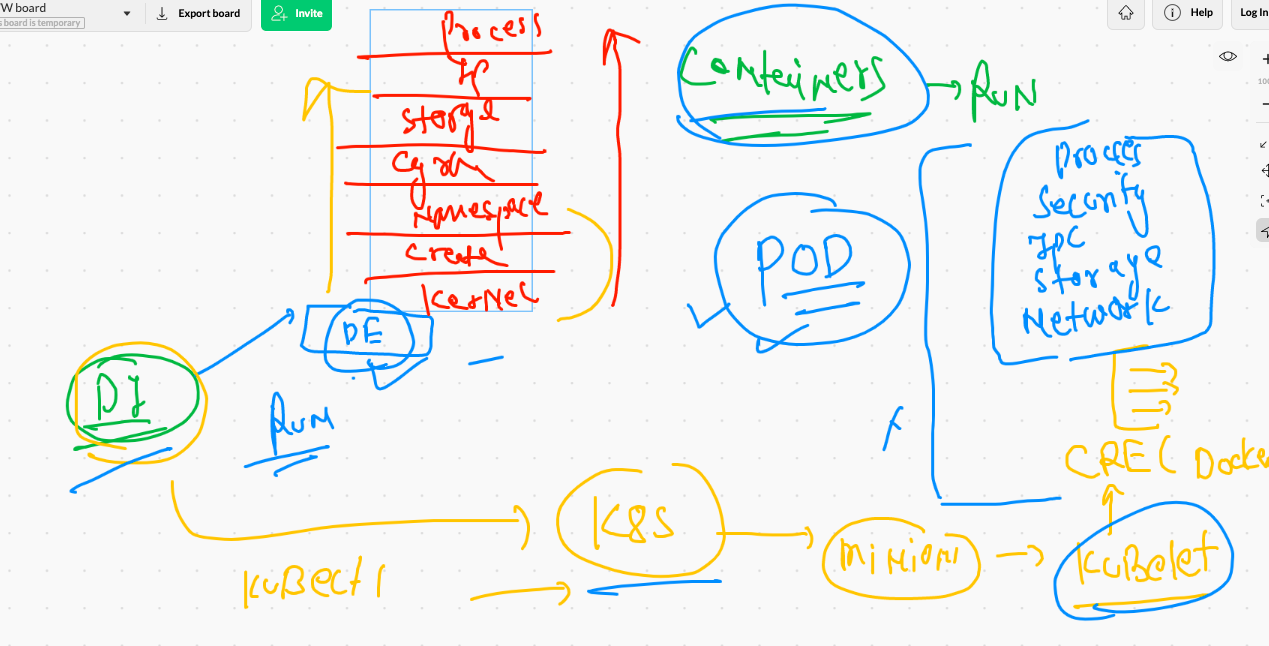 W board
s board is temporary
Export board
Invite
Help
Log In
Process
IP
Storge
Namespace
Create
Kernel
DE
DI
RUN
Containers
RUN
POD
Process
Security
IPC
Storage
Network
CRE (Docke
K8S
Minion
KuBelet
KuBectl